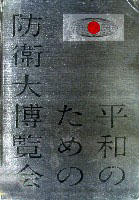 平和の
ための
防衛大博覧会